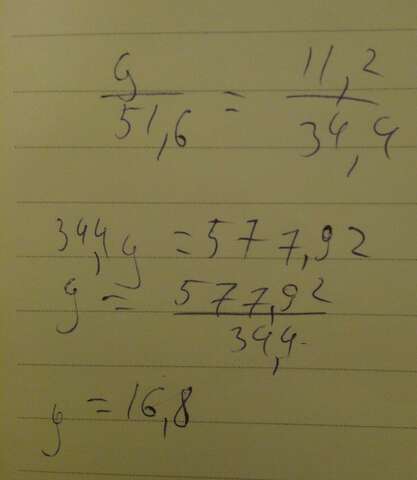 y/51,6 = 11,2/34,4
34,4y = 577,92
y = 577,92/34,4
y = 16,8